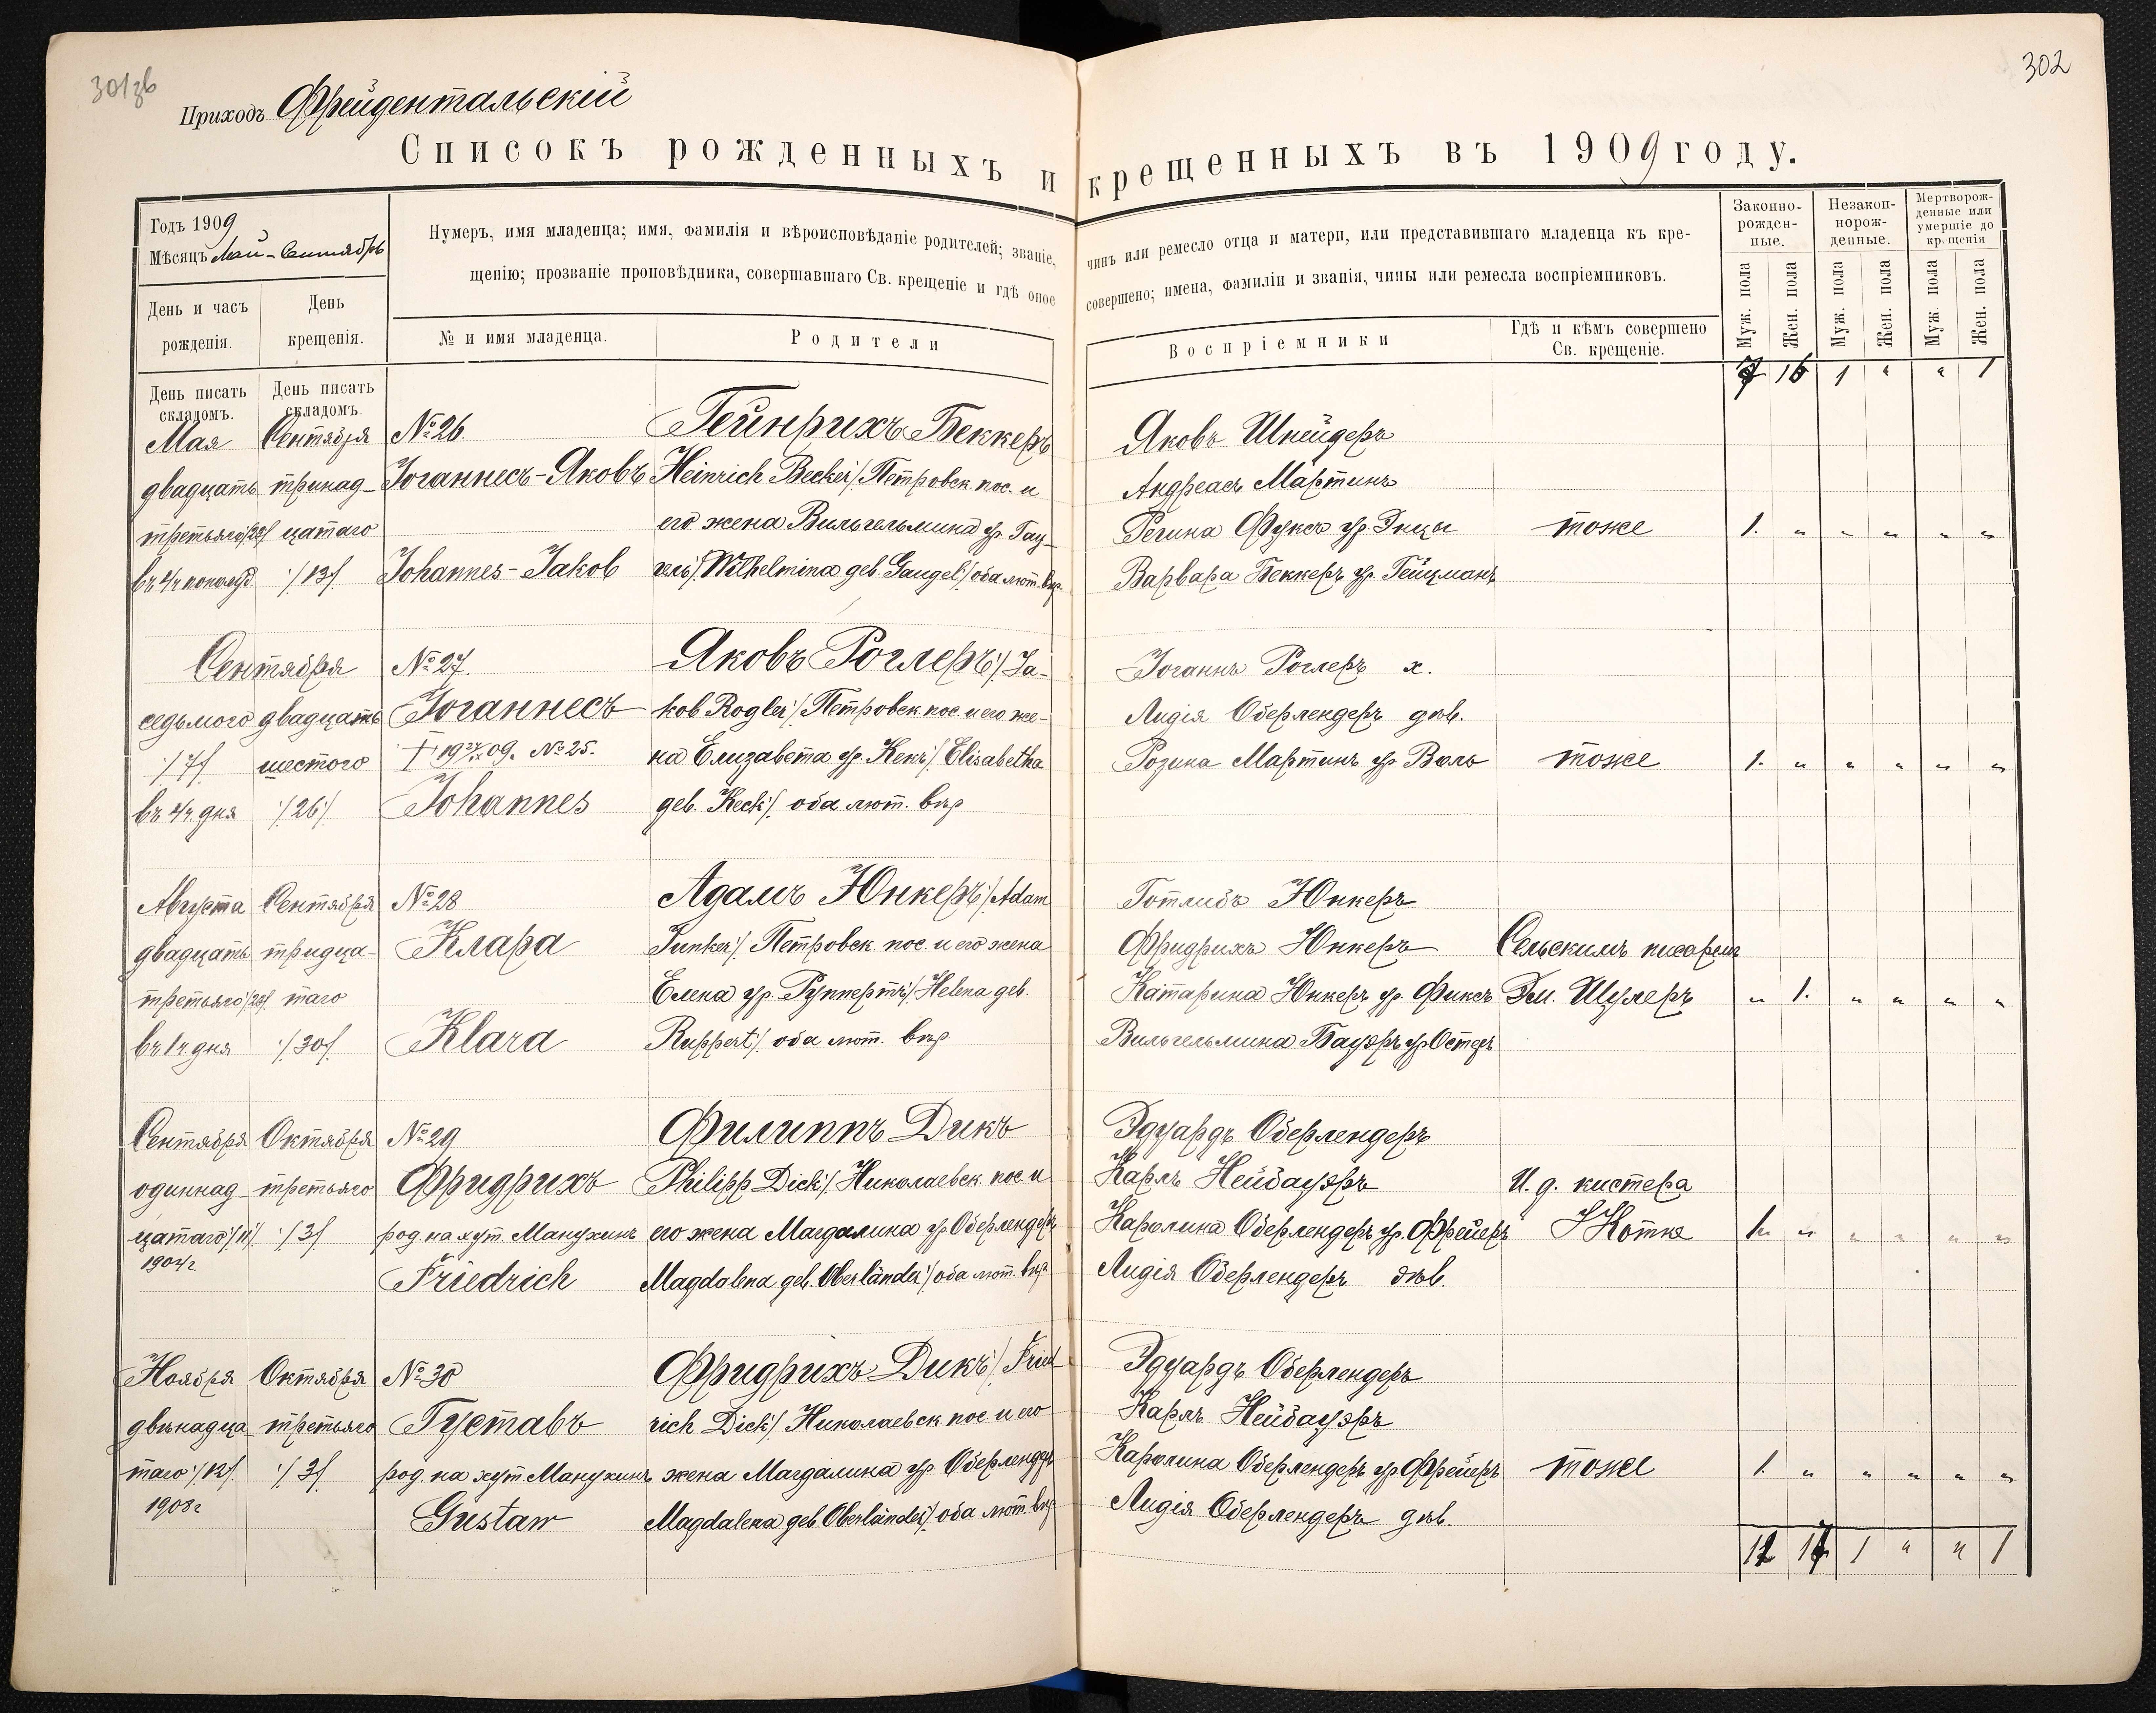 301 зв
302
Приходъ Фрейдентальскій
Списокъ рожденныхъ и крещенныхъ въ 1909 году.
Годъ 1909
Мѣсяцъ Май - Сентябрь
День и часъ рожденія.
День крещенія.
Нумеръ, имя младенца; имя, фамилія и вѣроисповѣданіе родителей; званіе, чинъ или ремесло отца и матери, или представившаго младенца къ кре-
щенію; прозваніе проповѣдника, совершавшаго Св. крещеніе и гдѣ оное совершено; имена, фамиліи и званія, чины или ремесла воспріемниковъ.
№ и имя младенца.
Родители
Воспріемники
Гдѣ и кѣмъ совершено Св. крещеніе.
Законно-рожден-ные.
Незакон-норож-денные.
Мертворож-денные или умершіе до крещенія
Муж. пола
Жен. пола
Муж. пола
Жен. пола
Муж. пола
Жен. пола
День писать складомъ.
День писать складомъ.
7 16 1 " " 1
Мая
двадцать
третьяго /23/
Сентября
тринад-
цатаго
/13/
№ 26.
Іоганнесъ-Яковъ
Johannes-Jakob
Гейнрихъ Беккеръ
Heinrich Becker/ Петровск. пос. и
его жена Вильгельмина ур. Гау-
гель /Wilhelmina geb. Gaugel/ оба лют. вѣр.
Яковъ Шнейдеръ
Андреасъ Мартинъ
Регина Фуксъ ур. Энцы
Варвара Беккеръ ур. Гейцманъ
тоже
1. " " " " "
Сентября
седьмого
/7/
въ 4 ч. дня
двадцать
шестого
/26/
№ 27.
Іоганнесъ
† 19 27/IX 09. № 25.
Johannes
Яковъ Роглеръ /Ja-
kob Rogler/ Петровск пос. и его же-
на Елизавета ур. Кекъ /Elisabetha
geb. Keck/ оба лют. вѣр
Іоганнъ Роглеръ х.
Лидія Оберлендеръ дѣв.
Розина Мартинъ ур. Валь
тоже
1. " " " " "
Августа
двадцать
третьяго /23/
въ 1 ч. дня
Сентября
тридца-
таго
/30/
№ 28
Клара
Klara
Адамъ Юнкеръ /Adam
Junker/ Петровск. пос. и его жена
Елена ур. Руппертъ /Helena geb.
Ruppert/ оба лют. вѣр
Готлибъ Юнкеръ
Фридрихъ Юнкеръ
Катарина Юнкеръ ур. Фиксъ
Вильгельмина Бауэръ ур Остеръ
Сельскимъ писаремъ
Эм. Шулеръ
" 1. " " " "
Сентября
одиннад-
цатаго /11/
1904 г.
Октября
третьяго
/3/
№ 29
Фридрихъ
род. на хут. Манухинъ
Friedrich
Филиппъ Дикъ
Philipp Dick/ Николаевск. пос и
его жена Магдалина ур. Оберлендеръ
Magdalena geb. Oberländer/ оба лют. вѣр
Эдуардъ Оберлендеръ
Карлъ Нейбауэръ
Каролина Оберлендеръ ур. Фрейеръ
Лидія Оберлендеръ дѣв.
И. д. кистера
1. " " " " "
Ноября
двѣнадца
таго /12/
1908 г
Октября
третьяго
/3/
№ 30
Густавъ
род. на хут. Манухинъ
Gustaw
Фридрихъ Дикъ /Fried
rich Dick/ Николаевск пос и его
жена Магдалина ур Оберлендеръ
Magdalena geb. Oberländer/ оба лют. вѣр
Эдуардъ Оберлендеръ
Карлъ Нейбауэръ
Каролина Оберлендеръ ур. Фрейеръ
Лидія Оберлендеръ дѣв.
тоже
1. " " " " "
12 17 1 " " 1